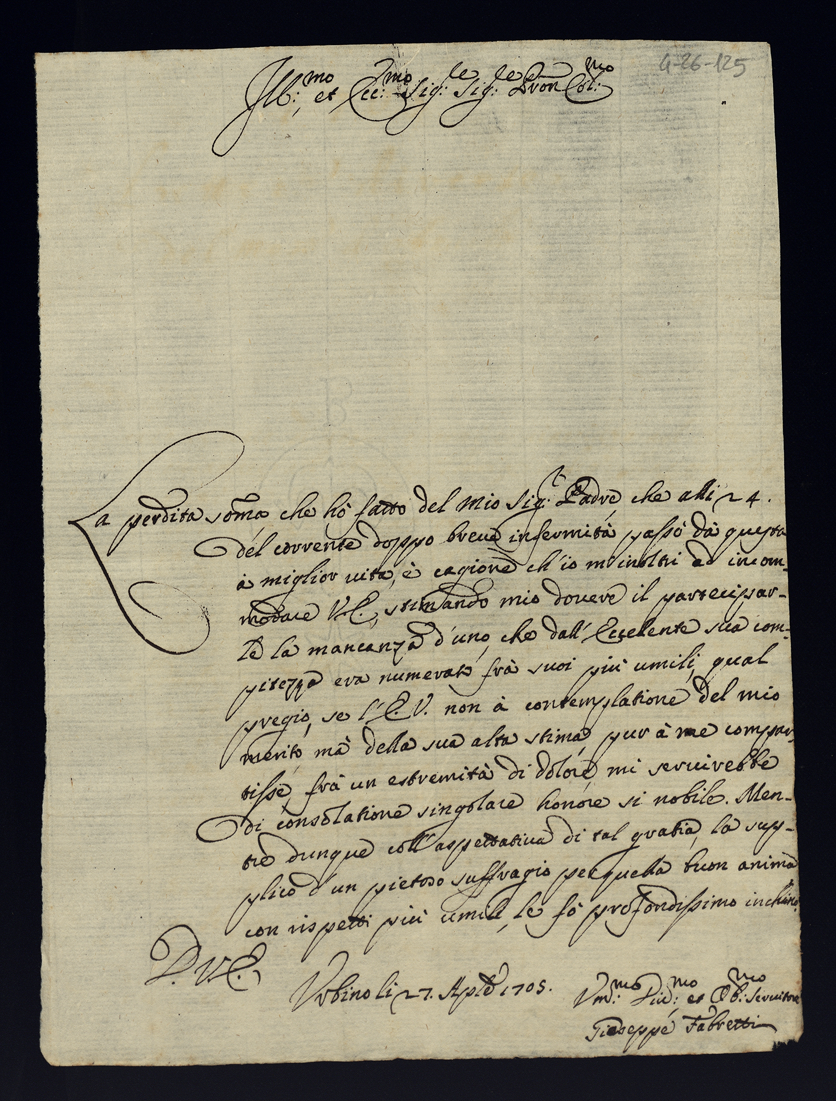 4-26-125
Ill:mo et Ecc:mo Sig:le Sig:le Pron Col:mo
La perdita som̃a che hò fatto del mio Sig:r Padre che alli 24.
del corrente doppo breve infermità passò dà questa
à miglior vita, è cagione ch'io m'inoltri ad incom-
modare V.E., stimando mio dovere il partecipar-
le la mancanza d'uno, che dall'Eccelente sua com-
pitezza era numerato frà suoi più umili, qual
pregio, se l'E.V. non à contemplatione del mio
merito, mà della sua alta stima pur à me compar-
tisse, frà un estremità di dolore, mi servirebbe
di consolatione singolare honore si nobile. Men-
tre dunque coll'aspettativa di tal gratia, la sup-
plico d'un pietoso suffragio per quella buon anima
con rispetti più umili, le fò profondissimo inchino
D.V.E.
Urbino li 27. Aple 1705.
Um:mo Div:mo et Ob:mo Servitore
Gioseppe Fabretti